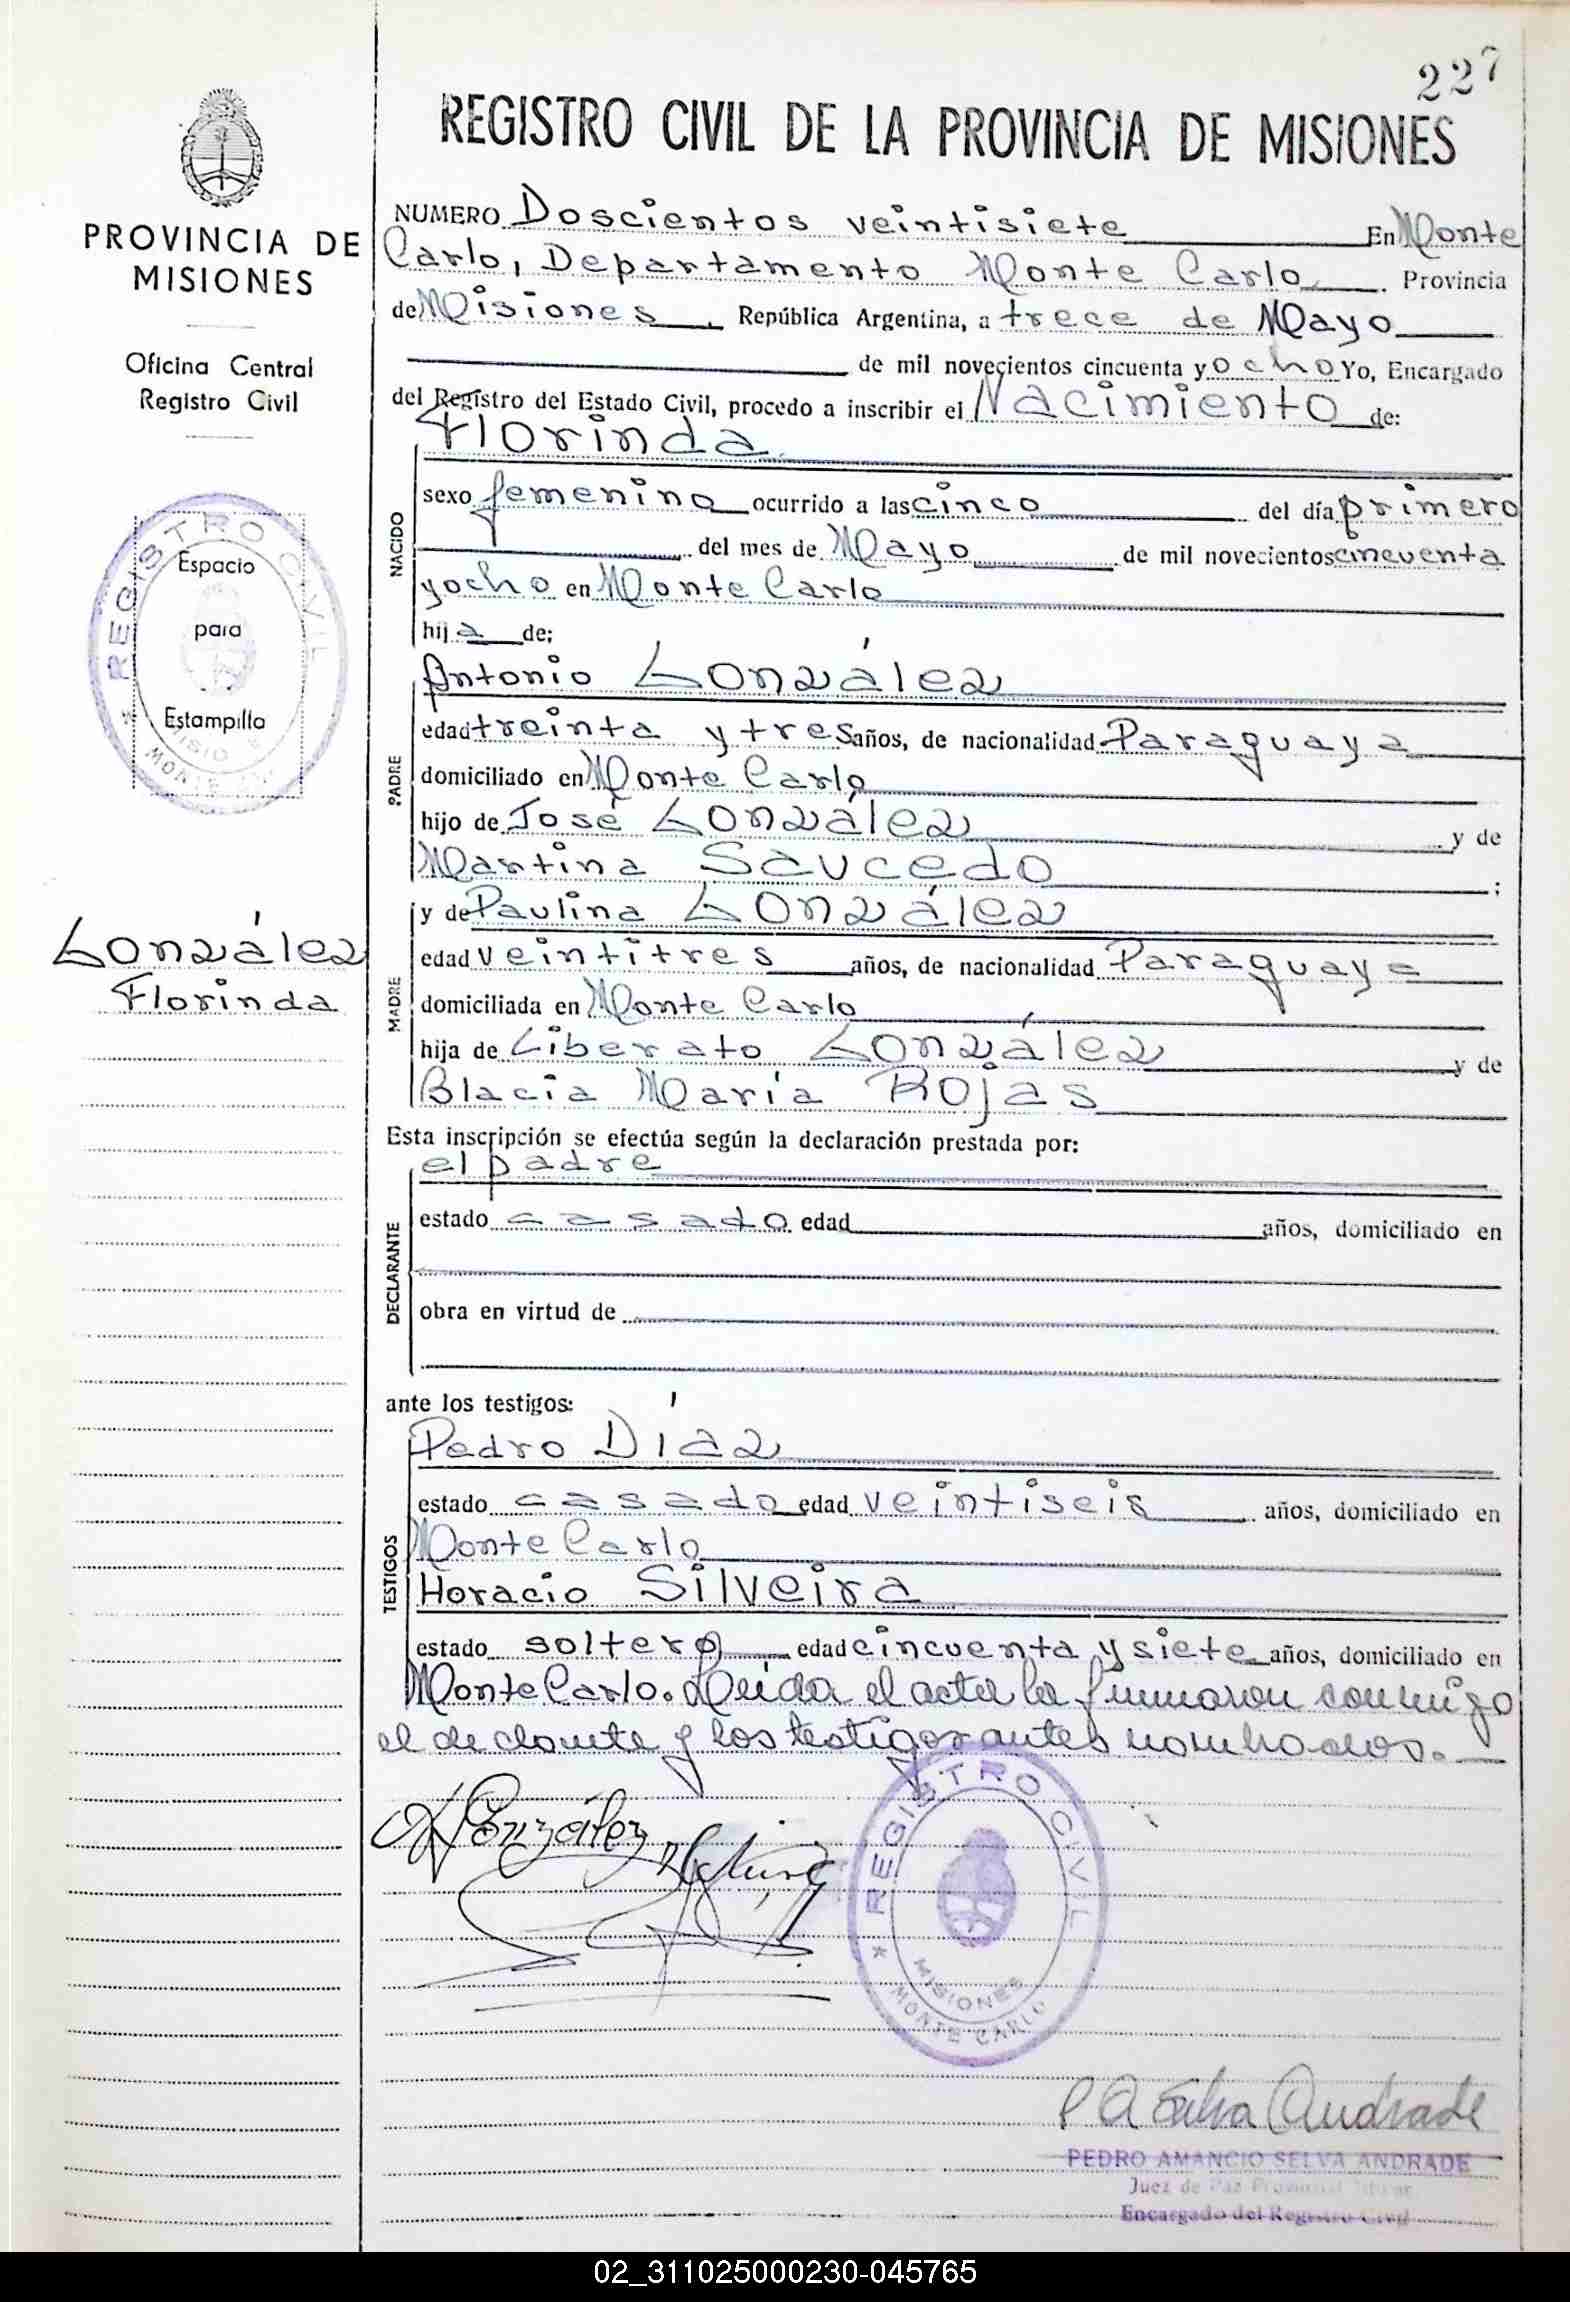 227
REGISTRO CIVIL DE LA PROVINCIA DE MISIONES
PROVINCIA DE
MISIONES
Oficina Central
Registro Civil
REGISTRO CIVIL
Espacio
para
Estampilla
MISIONES
MONTE CARLO
González
Florinda
NUMERO Doscientos veintisiete En Monte
Carlo, Departamento Monte Carlo, Provincia
de Misiones, República Argentina, a trece de Mayo
de mil novecientos cincuenta y ocho Yo, Encargado
del Registro del Estado Civil, procedo a inscribir el Nacimiento de:
NACIDO
Florinda
sexo femenino ocurrido a las cinco del día primero
del mes de Mayo de mil novecientos cincuenta
y ocho en Monte Carlo
hija de:
PADRE
Antonio González
edad treinta y tres años, de nacionalidad Paraguaya
domiciliado en Monte Carlo
hijo de José González y de
Martina Saucedo ;
MADRE
y de Paulina González
edad veintitres años, de nacionalidad Paraguaya
domiciliada en Monte Carlo
hija de Liberato González y de
Blacia María Rojas
Esta inscripción se efectúa según la declaración prestada por:
DECLARANTE
el padre
estado casado edad años, domiciliado en
obra en virtud de
ante los testigos:
TESTIGOS
Pedro Díaz
estado casado edad veintiseis años, domiciliado en
Monte Carlo
Horacio Silveira
estado soltero edad cincuenta y siete años, domiciliado en
Monte Carlo. Leída el acta la firmaron conmigo
el declarante y los testigos antes nombrados.
A González
REGISTRO CIVIL
MISIONES
MONTE CARLO
P A Selva Andrade
PEDRO AMANCIO SELVA ANDRADE
Juez de Paz Provincial Titular
Encargado del Registro Civil
02_311025000230-045765